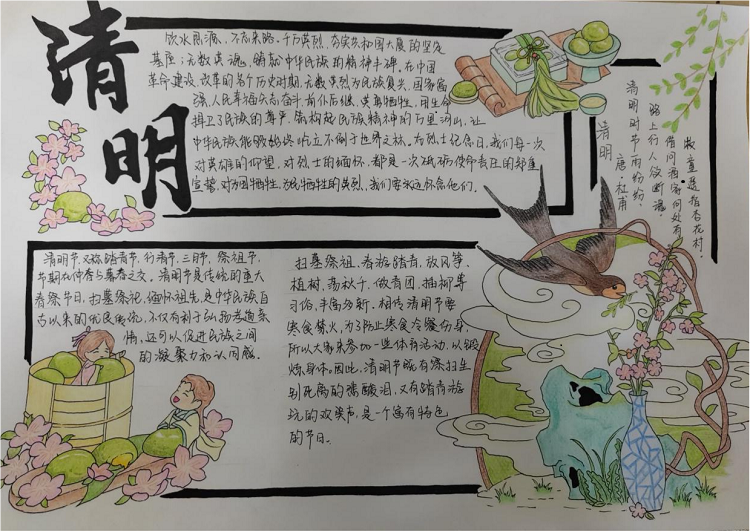 清明
饮水思源，不忘来路。千万英烈，夯实共和国大厦的坚定
基座；无数英魂，铸就中华民族的精神丰碑。在中国
革命、建设、改革的各个历史时期，无数英烈为民族复兴、国家富
强、人民幸福矢志奋斗、前仆后继、英勇牺牲，用生命
捍卫了民族的尊严，铸构起民族精神的万里河山，让
中华民族能够始终屹立不倒于世界之林。为烈士纪念日，我们每一次
对英雄的仰望，对烈士的缅怀，都是一次砥砺使命责任的郑重
宣誓，对为国牺牲、为民牺牲的英烈，我们要永远怀念他们。
清明
唐·杜甫
清明时节雨纷纷，
路上行人欲断魂。
借问酒家何处有，
牧童遥指杏花村。
清明节，又称踏青节、行清节、三月节、祭祖节，
节期在仲春与暮春之交。清明节是传统的重大
春祭节日，扫墓祭祀、缅怀祖先，是中华民族自
古以来的优良传统，不仅有利于弘扬孝道亲
情，还可以促进民族之间
的凝聚力和认同感。
扫墓祭祖、春游踏青、放风筝、
植树、荡秋千、做青团、插柳等
习俗，丰富多彩。相传清明节要
寒食禁火，为了防止寒食冷餐伤身，
所以大家来参加一些体育活动，以锻
炼身体。因此，清明节既有祭扫生
别死离的悲酸泪，又有踏青游
玩的欢笑声，是一个富有特色
的节日。